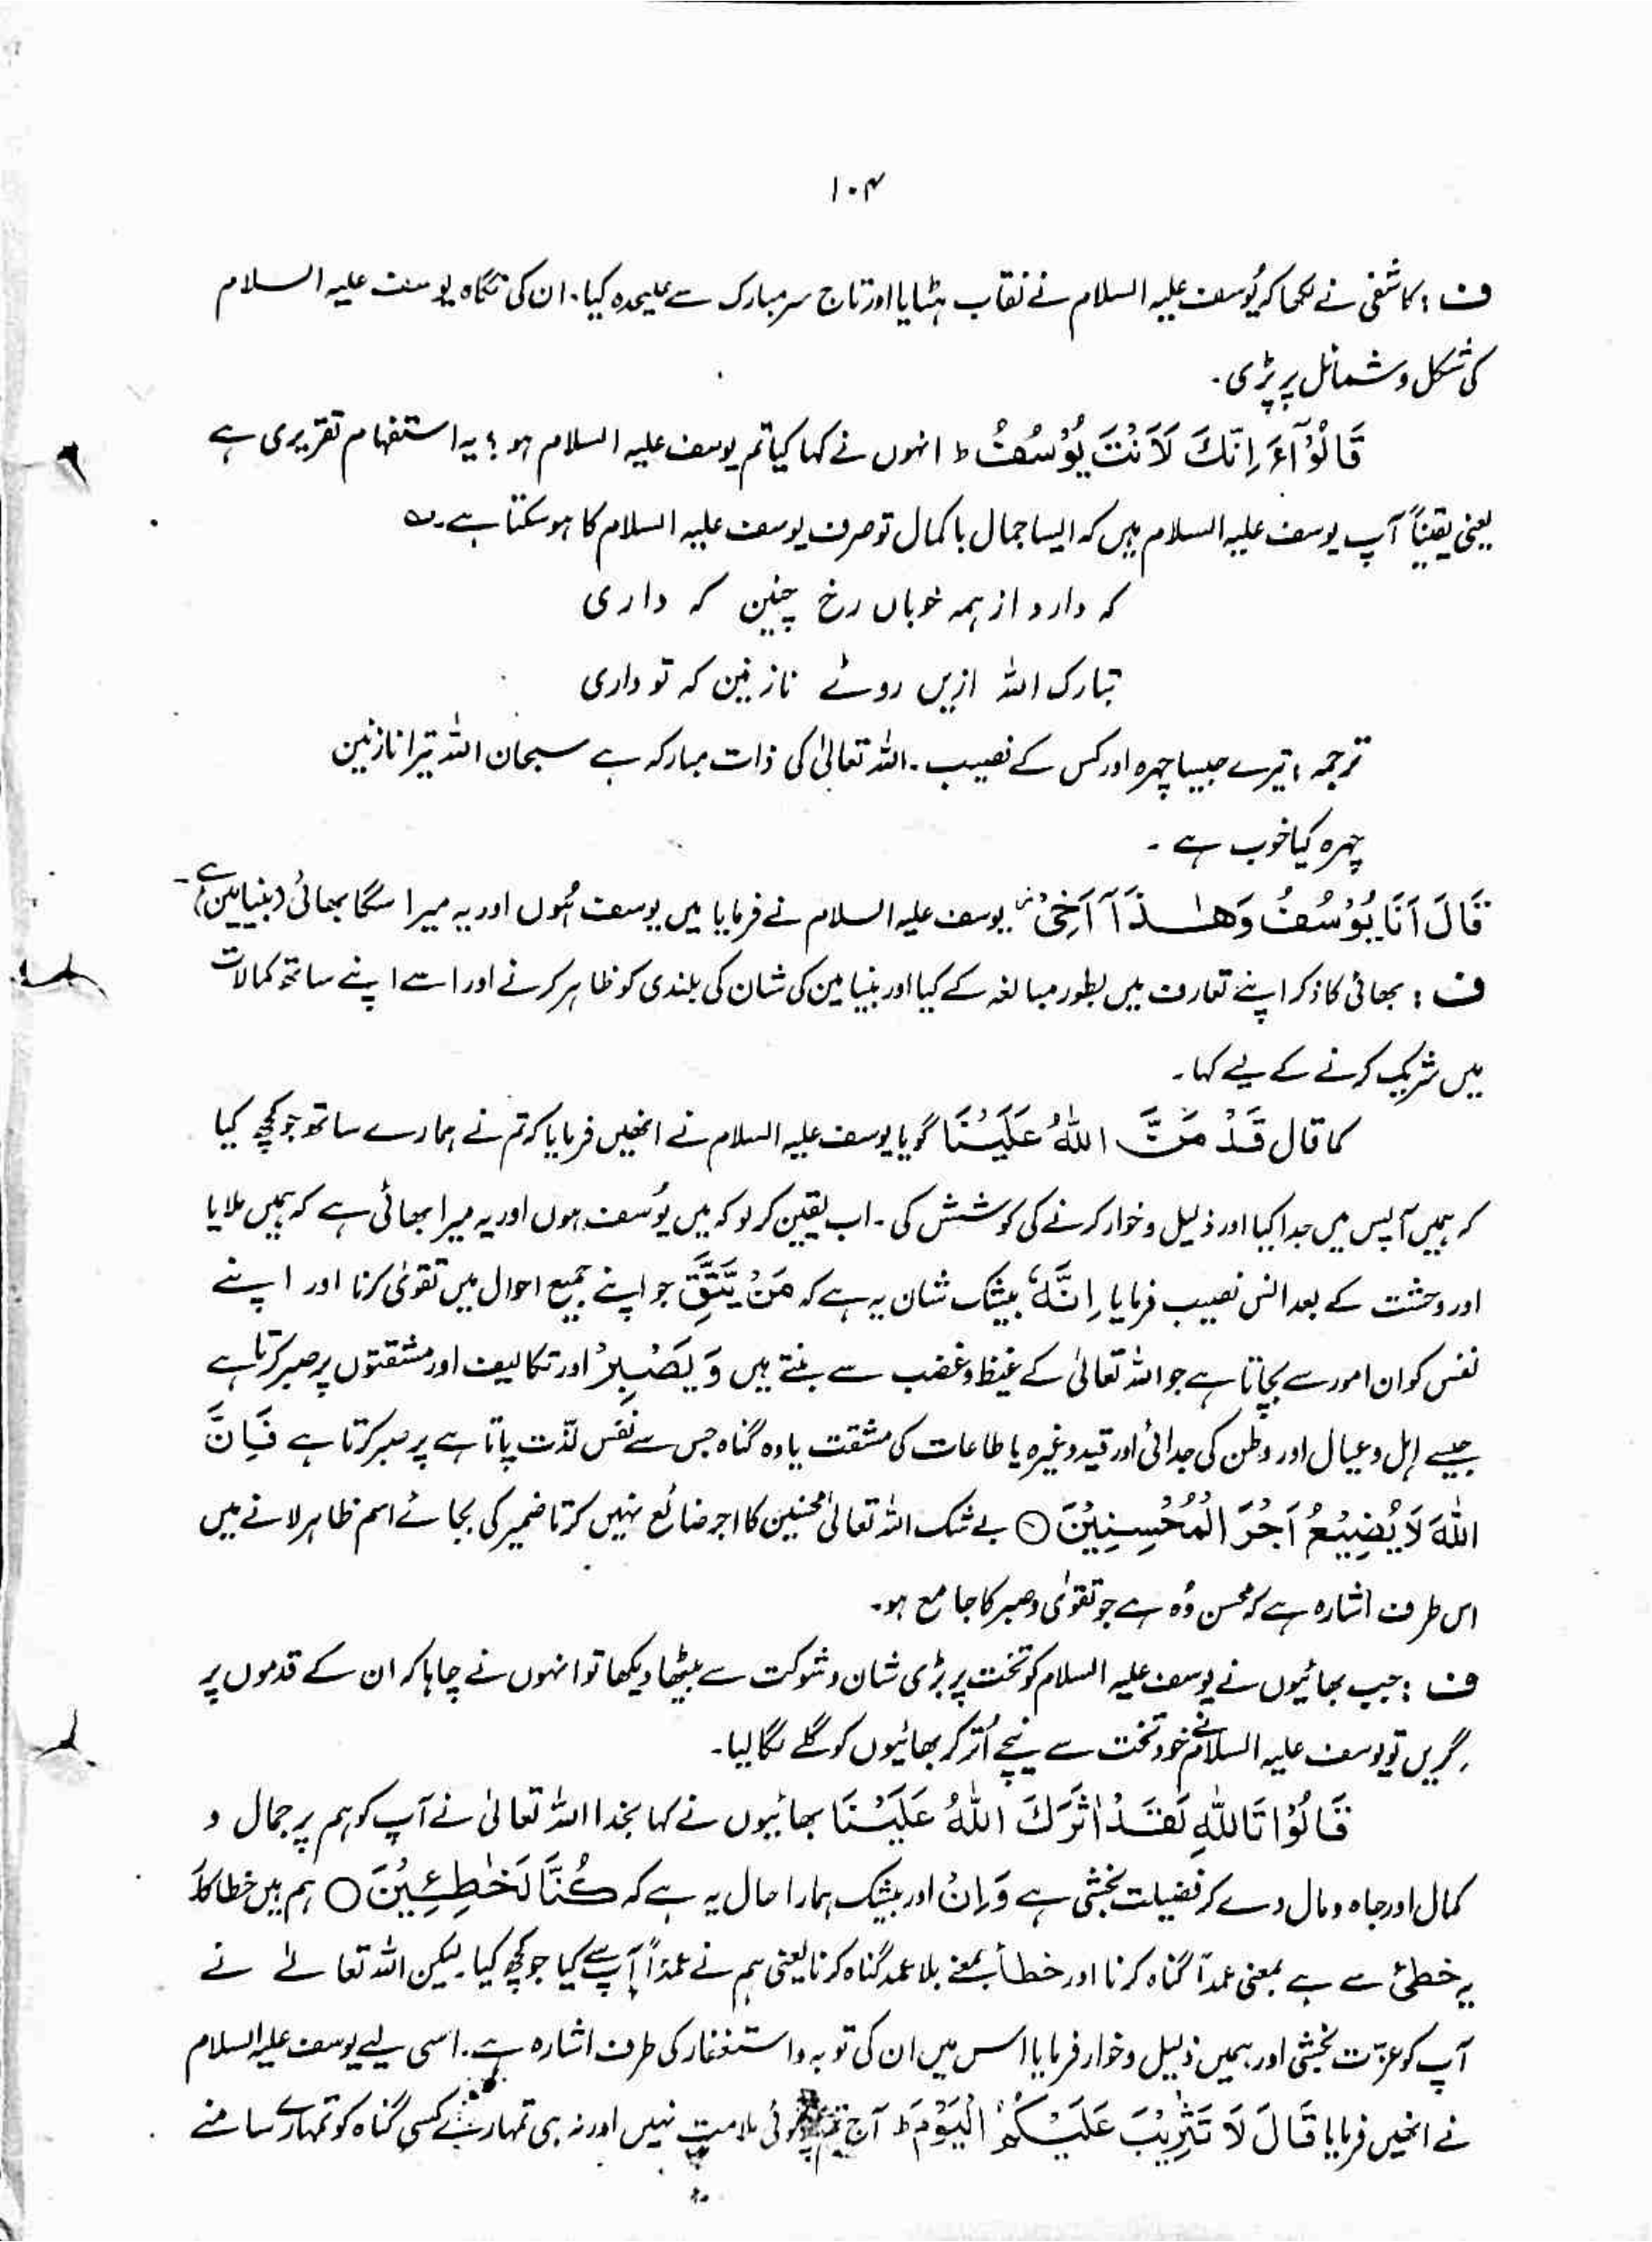 ۱۰۴
ف : کاشفی نے لکھا کہ یُوسف علیہ السلام نے نقاب ہٹایا اور تاج سر مبارک سے علیحدہ کیا۔ ان کی نگاہ یوسف علیہ السلام
کی شکل و شمائل پر پڑی۔
قَالُوْٓا ءَاِنَّكَ لَاَنْتَ يُوْسُفُ ط انہوں نے کہا کیا تم یوسف علیہ السلام ہو ؟ یہ استفہام تقریری ہے
یعنی یقیناً آپ یوسف علیہ السلام ہیں کہ ایسا جمال باکمال تو صرف یوسف علیہ السلام کا ہو سکتا ہے۔ ؎
کہ دارد از ہمہ خوباں رخ چنین کہ داری
تبارک اللہ ازیں روئے نازنین کہ تو داری
ترجمہ : تیرے جیسا چہرہ اور کس کے نصیب۔ اللہ تعالیٰ کی ذات مبارکہ ہے سبحان اللہ تیرا نازنین
چہرہ کیا خوب ہے ۔
قَالَ اَنَا يُوْسُفُ وَهٰـذَآ اَخِیْ یوسف علیہ السلام نے فرمایا میں یوسف ہُوں اور یہ میرا سگا بھائی (بنیامین) ہے۔
ف : بھائی کا ذکر اپنے تعارف میں بطور مبالغہ کے کیا اور بنیامین کی شان کی بلندی کو ظاہر کرنے اور اسے اپنے ساتھ کمالات
میں شریک کرنے کے لیے کہا۔
کما قال قَدْ مَنَّ اللهُ عَلَيْنَا گویا یوسف علیہ السلام نے انھیں فرمایا کہ تم نے ہمارے ساتھ جو کچھ کیا
کہ ہمیں آپس میں جدا کیا اور ذلیل و خوار کرنے کی کوشش کی۔ اب یقین کرلو کہ میں یُوسف ہوں اور یہ میرا بھائی ہے کہ ہمیں ملایا
اور وحشت کے بعد انس نصیب فرمایا اِنَّهٗ بیشک شان یہ ہے کہ مَنْ يَّتَّقِ جو اپنے جمیع احوال میں تقویٰ کرتا اور اپنے
نفس کو ان امور سے بچاتا ہے جو اللہ تعالیٰ کے غیظ و غضب سے بنتے ہیں وَ يَصْبِرْ اور تکالیف اور مشقتوں پر صبر کرتا ہے
جیسے اہل و عیال اور وطن کی جدائی اور قید وغیرہ یا طاعات کی مشقت یا وہ گناہ جس سے نفس لذّت پاتا ہے پر صبر کرتا ہے فَاِنَّ
اللهَ لَا يُضِيْعُ اَجْرَ الْمُحْسِنِيْنَ ○ بے شک اللہ تعالیٰ محسنین کا اجر ضائع نہیں کرتا ضمیر کی بجائے اسم ظاہر لانے میں
اس طرف اشارہ ہے کہ محسن وُہ ہے جو تقوٰی و صبر کا جامع ہو۔
ف : جب بھائیوں نے یوسف علیہ السلام کو تخت پر بڑی شان و شوکت سے بیٹھا دیکھا تو انہوں نے چاہا کہ ان کے قدموں پر
گریں تو یوسف علیہ السلام نے خود تخت سے نیچے اُتر کر بھائیوں کو گلے لگا لیا۔
قَالُوْا تَاللهِ لَقَدْ اٰثَرَكَ اللهُ عَلَيْنَا بھائیوں نے کہا بخدا اللہ تعالیٰ نے آپ کو ہم پر جمال و
کمال اور جاہ و مال دے کر فضیلت بخشی ہے وَاِنْ اور بیشک ہمارا حال یہ ہے کہ كُنَّا لَخٰطِـئِيْنَ ○ ہم ہیں خطا کار
یہ خطئ سے ہے بمعنی عمداً گناہ کرنا اور خطأ بمعنے بلا عمد گناہ کرنا یعنی ہم نے عمداً آپ سے کیا جو کچھ کیا۔ لیکن اللہ تعالےٰ نے
آپ کو عزّت بخشی اور ہمیں ذلیل و خوار فرمایا اس میں ان کی توبہ و استغفار کی طرف اشارہ ہے۔ اسی لیے یوسف علیہ السلام
نے انھیں فرمایا قَالَ لَا تَثْرِيْبَ عَلَيْكُمُ الْيَوْمَ ط آج تم پر کوئی ملامت نہیں اور نہ ہی تمہارے کسی گناہ کو تمہارے سامنے